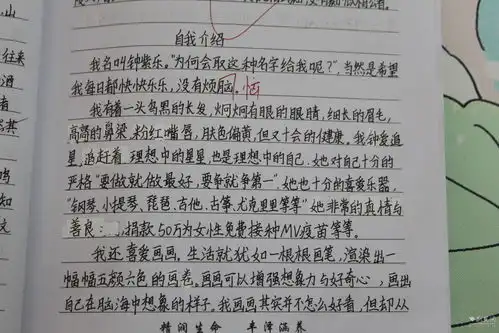 自我介绍
我名叫钟紫乐。"为何会取这种名字给我呢?",当然是希望
我每日都快快乐乐,没有烦脑。恼
我有着一头乌黑的长发,炯炯有眼的眼睛,细长的眉毛,
高高的鼻梁,粉红嘴唇,肤色偏黄,但又十会的健康。我钟爱追
星,追赶着 理想中的星星,也是理想中的自己。她对自己十分的
严格"要做就做最好,要争就争第一"。她也十分的喜爱乐器,
"钢琴、小提琴、琵琶、古他、古筝、尤克里里等等"她非常的真情与
善良:捐款50万为女性免费接种MV疫苗等等。
我还喜爱画画。生活就犹如一根根画笔,渲染出一
幅幅五颜六色的画卷。画画可以增强想象力与好奇心,画出
自己在脑海中想象的样子。我画画其实并不怎么好看,但却从
精阅生命 丰泽涵养
往来